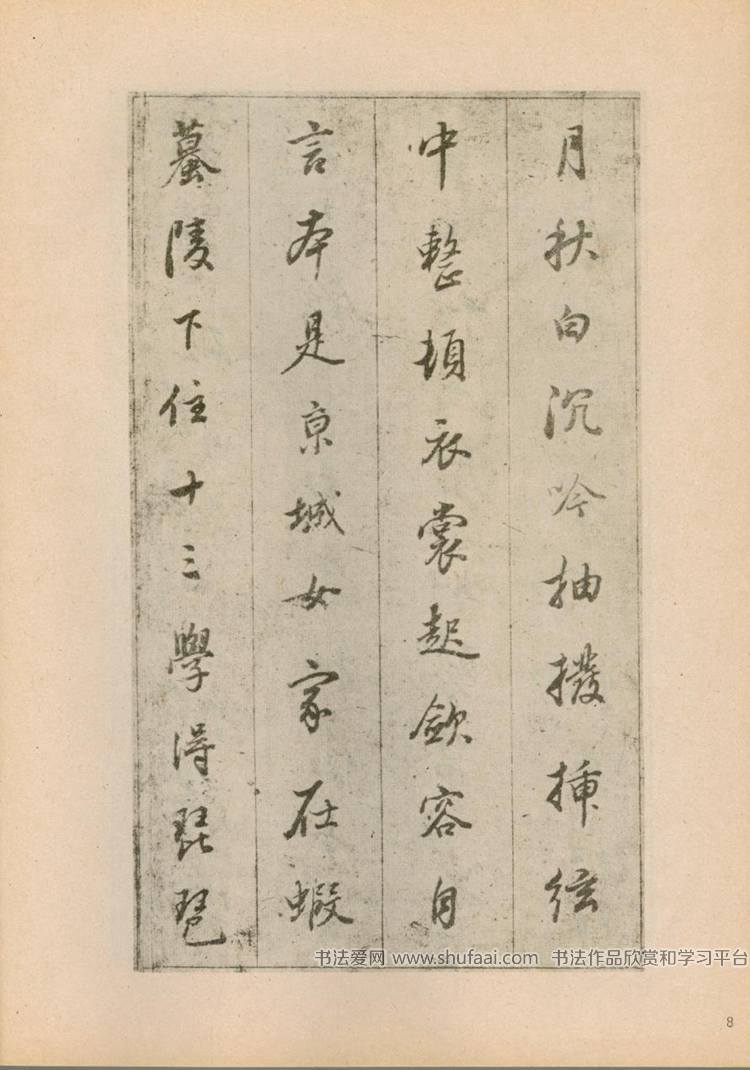 月秋白沉吟抽撥揷絃
中整頓衣裳起歛容自
言本是京城女家在蝦
蟇陵下住十三學得琵琶
书法爱网 www.shufaai.com 书法作品欣赏和学习平台
8